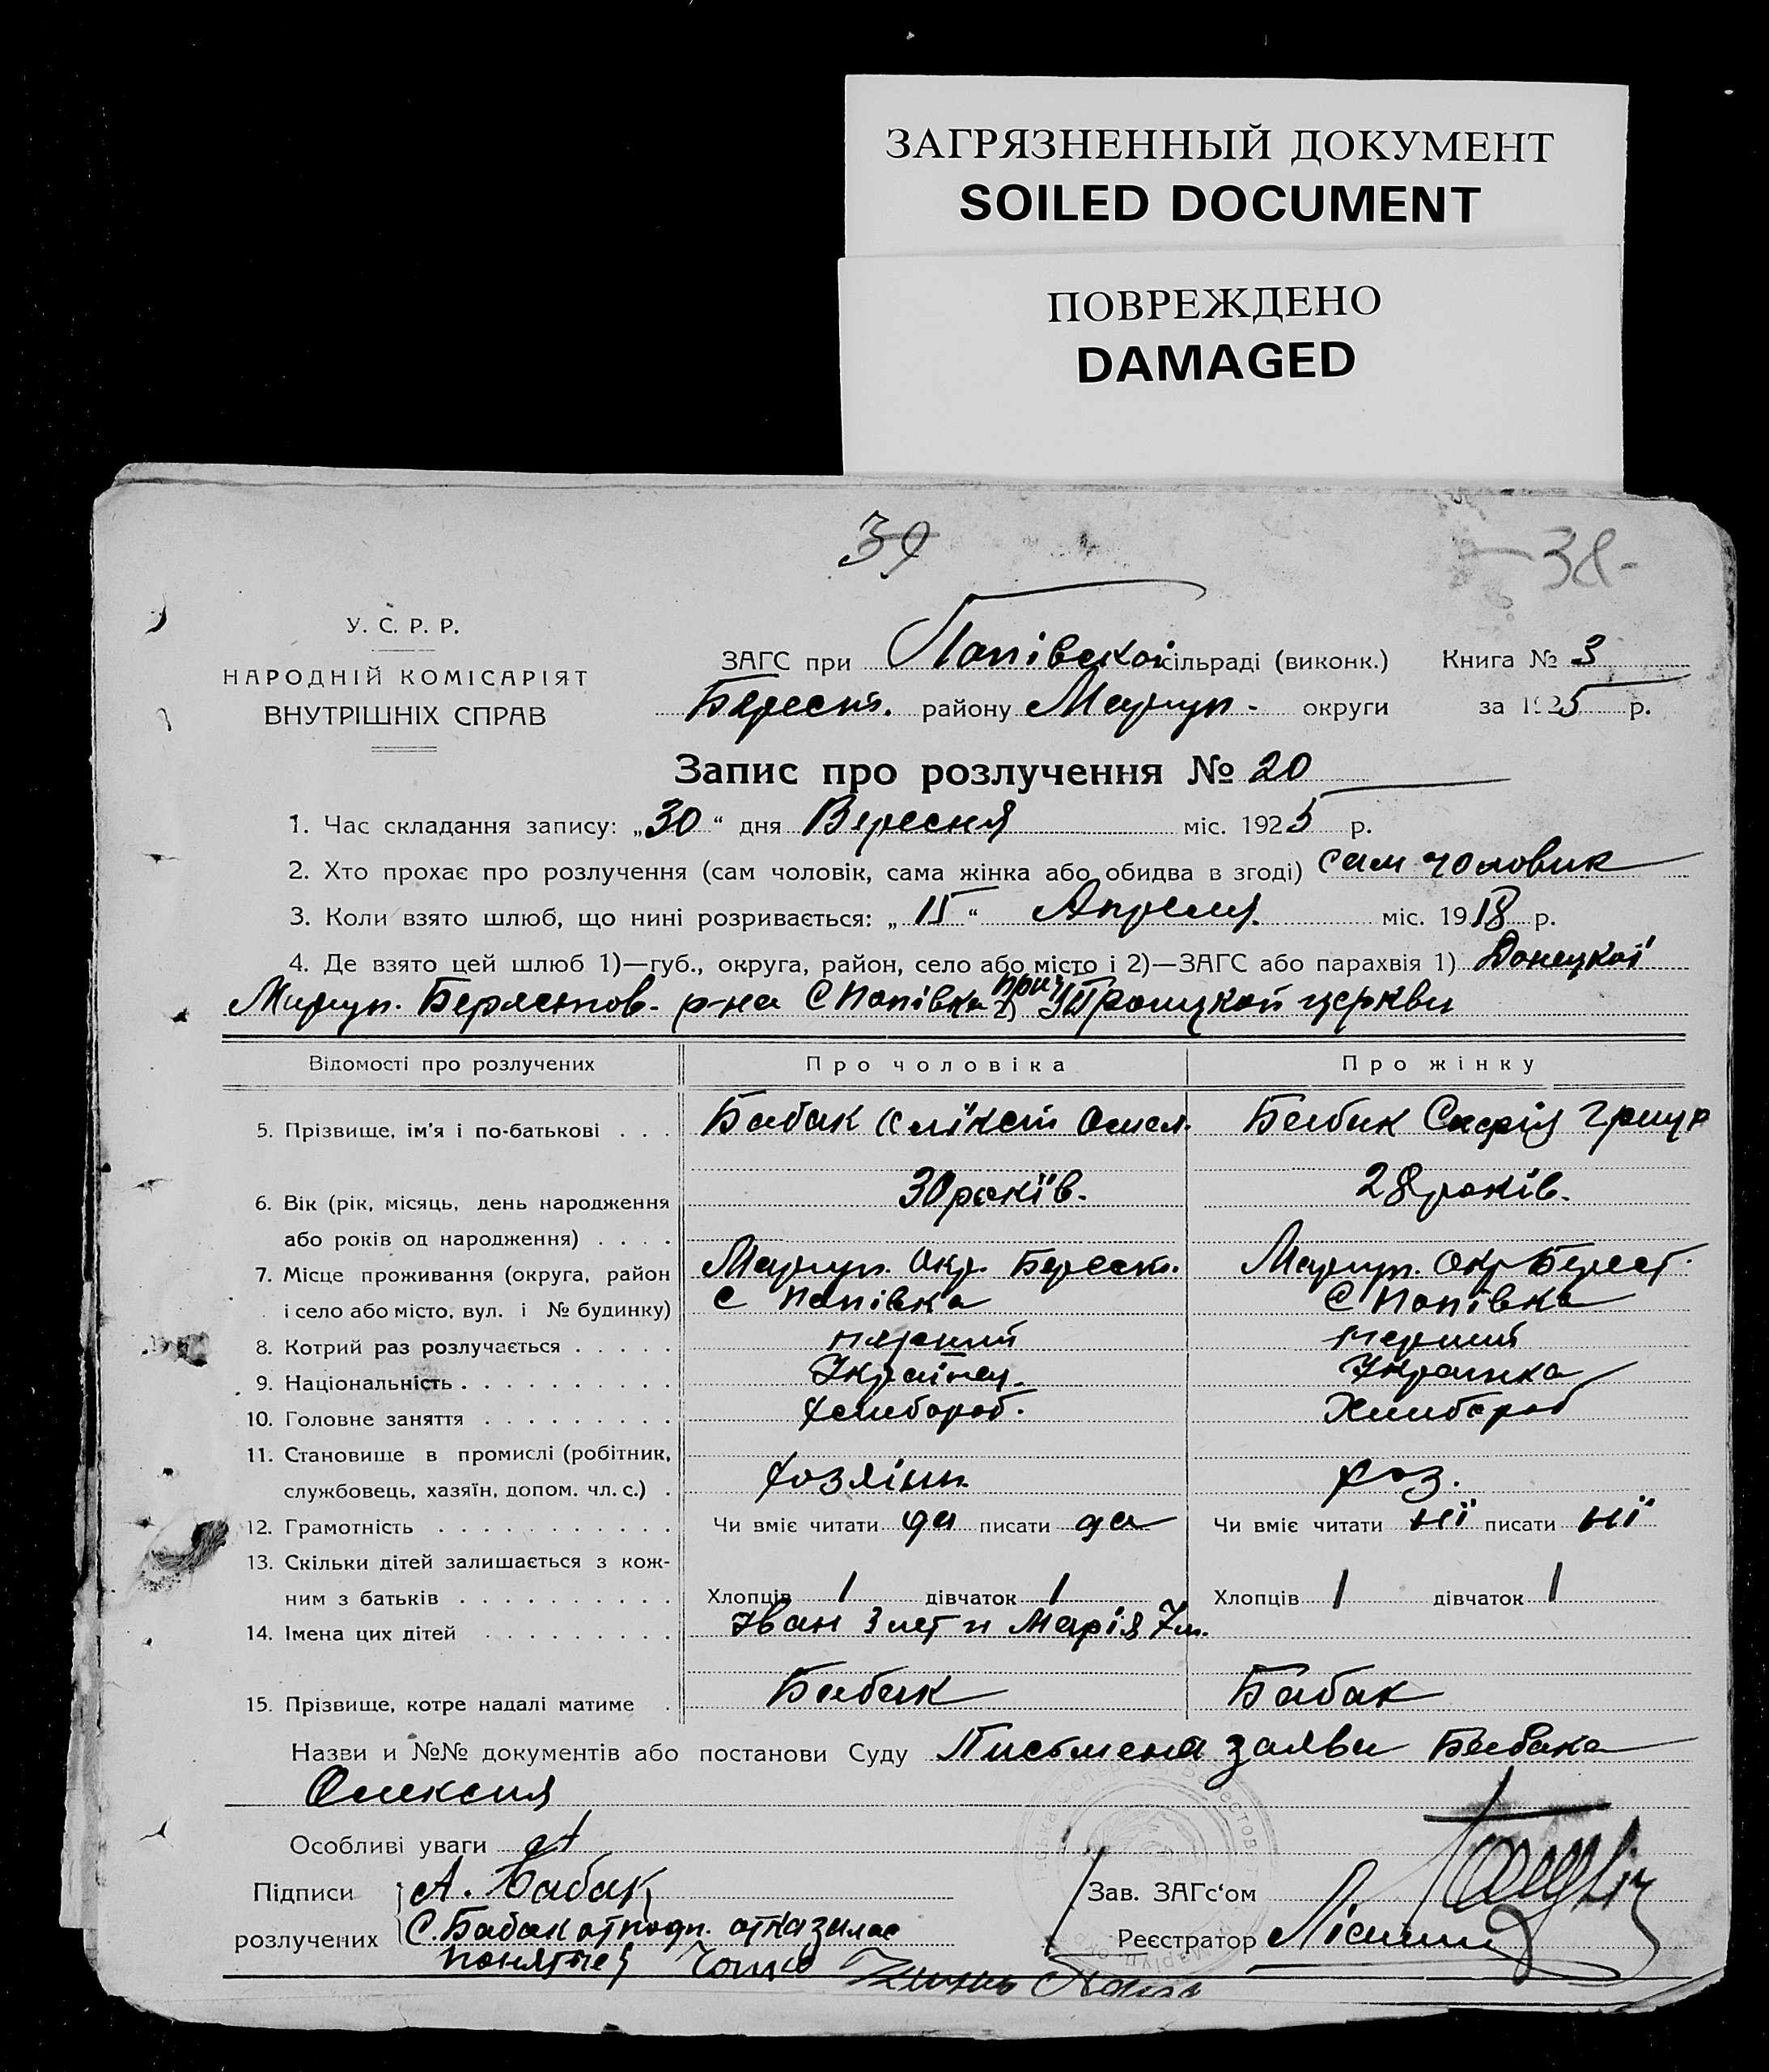 ЗАГРЯЗНЕННЫЙ ДОКУМЕНТ
SOILED DOCUMENT
ПОВРЕЖДЕНО
DAMAGED
39
38-
У. С. Р. Р.
НАРОДНІЙ КОМІСАРІЯТ
ВНУТРІШНІХ СПРАВ
ЗАГС при Попівской сільраді (виконк.) Книга № 3
Берест. району Мариуп. округи за 1925 р.
Запис про розлучення № 20
1. Час складання запису: „30“ дня Вересня міс. 1925 р.
2. Хто прохає про розлучення (сам чоловік, сама жінка або обидва в згоді) сам чоловик
3. Коли взято шлюб, що нині розривається: „15“ Апреля міс. 1918 р.
4. Де взято цей шлюб 1)—губ., округа, район, село або місто і 2)—ЗАГС або парахвія 1) Донецкої
Мариуп. Берестов. р-на С Попівка 2) при Троицкой церкви
Відомості про розлучених Про чоловіка Про жінку
5. Прізвище, ім'я і по-батькові . . . Бабак Омел. Бабак Софія Григор
6. Вік (рік, місяць, день народження 30 років. 28 років.
або років од народження) . . . .
7. Місце проживання (округа, район Мариуп. Окр. Берест. Мариуп. Окр Берест.
і село або місто, вул. і № будинку) с Попівка С Попівка
8. Котрий раз розлучається . . . . . перший перший
9. Національність . . . . . . . . . . Українец. Украинка
10. Головне заняття . . . . . . . . . Хлибороб. Хлибороб
11. Становище в промислі (робітник,
службовець, хазяїн, допом. чл. с.) . Хозяїин хоз.
12. Грамотність . . . . . . . . . . . Чи вміє читати да писати да Чи вміє читати ні писати ні
13. Скільки дітей залишається з кож-
ним з батьків . . . . . . . . . . Хлопців 1 дівчаток 1 Хлопців 1 дівчаток 1
14. Імена цих дітей . . . . . . . . . Іван 3 лет и Марія 7 л.
15. Прізвище, котре надалі матиме . Бабак Бабак
Назви и №№ документів або постанови Суду Письмена заява Бабака
Олексия
Особливі уваги
Підписи А. Бабак Зав. ЗАГс'ом
розлучених С. Бабак от подп. отказалас Реєстратор
понятые